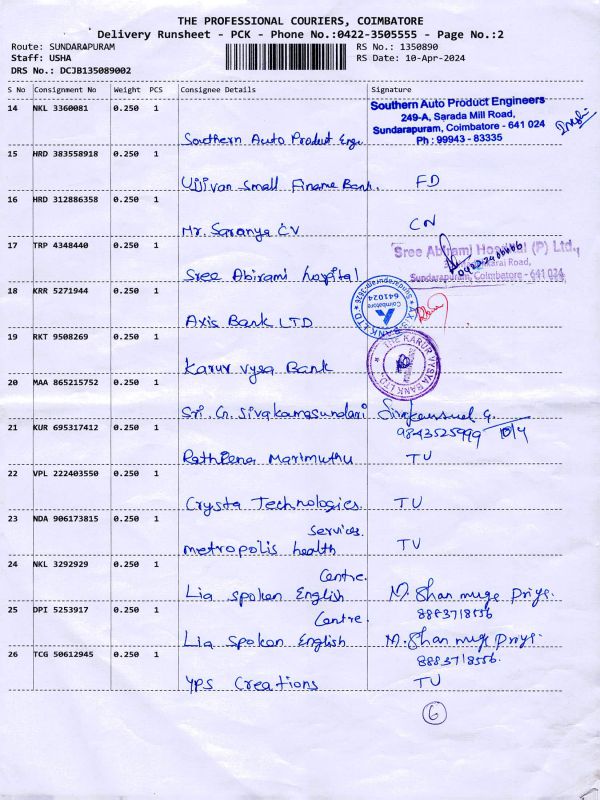 THE PROFESSIONAL COURIERS, COIMBATORE
Delivery Runsheet - PCK - Phone No.:0422-3505555 - Page No.:2
Route: SUNDARAPURAM
RS No.: 1350890
Staff: USHA
RS Date: 10-Apr-2024
DRS No.: DCJB135089002
S No Consignment No Weight PCS Consignee Details Signature
14 NKL 3360081 0.250 1
Southern Auto Product Engineers
249-A, Sarada Mill Road,
Sundarapuram, Coimbatore - 641 024
Ph : 99943 - 83335
Southern Auto Product Engi
15 HRD 383558918 0.250 1
Ujjivan Small Finame Bank. FD
16 HRD 312886358 0.250 1
Mr. Saranya CV CN
17 TRP 4348440 0.250 1
Sree Abirami Hospital (P) Ltd.,
Road,
Sundarapuram, Coimbatore - 641 024
Sree Abirami hospital
18 KRR 5271944 0.250 1
AXIS BANK LTD Sundarapuram-3026 Coimbatore 641024
Axis Bank LTD
19 RKT 9508269 0.250 1
THE KARUR VYSYA BANK LTD.
Karur Vysa Bank
20 MAA 865215752 0.250 1
Sri. G. Sivakamasundari
9843525999 10/4
21 KUR 695317412 0.250 1
Rathleena Marimuthu TU
22 VPL 222403550 0.250 1
Crysta Technologies. TU
23 NDA 906173815 0.250 1
Services.
metropolis health TU
24 NKL 3292929 0.250 1
Centre.
Lia spoken English M. Shan muge Priye.
8883718556
25 DPI 5253917 0.250 1
Centre.
Lia Spoken English M. Shan muge Priye.
8883718556.
26 TCG 50612945 0.250 1
YPS Creations TU
6